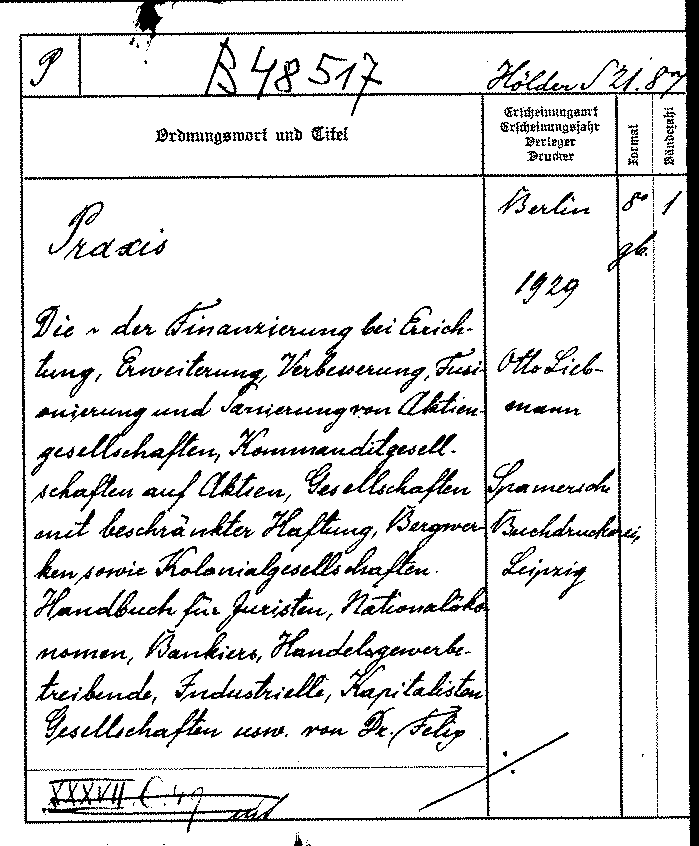 P
B 48517
Hölder S 21.87
Ordnungswort und Titel
Erscheinungsort
Erscheinungsjahr
Verleger
Drucker
Format
Bändezahl
Praxis
Die ~ der Finanzierung bei Errich-
tung, Erweiterung, Verbesserung, Fusi-
onierung und Sanierung von Aktien-
gesellschaften, Kommanditgesell-
schaften auf Aktien, Gesellschaften
mit beschränkter Haftung, Bergwer-
ken sowie Kolonialgesellschaften.
Handbuch für Juristen, Nationalöko-
nomen, Bankiers, Handelsgewerbe-
treibende, Industrielle, Kapitalisten
Gesellschaften usw. von Dr. Felix
Berlin
1929
Otto Lieb-
mann
Spamersche
Buchdruckerei,
Leipzig
8°
gb.
1
XXXVII. C. 49